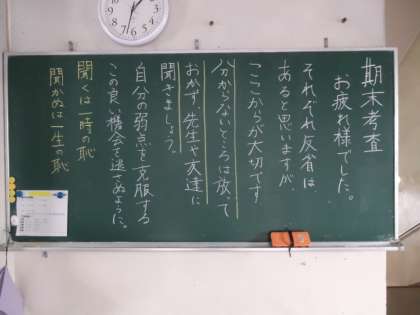 期末考査
お疲れ様でした。
それぞれ反省は
あると思いますが、
ここからが大切です
分からないところは放って
おかず、先生や友達に
聞きましょう。
自分の弱点を克服する
この良い機会を逃さぬように。
聞くは一時の恥
聞かぬは一生の恥